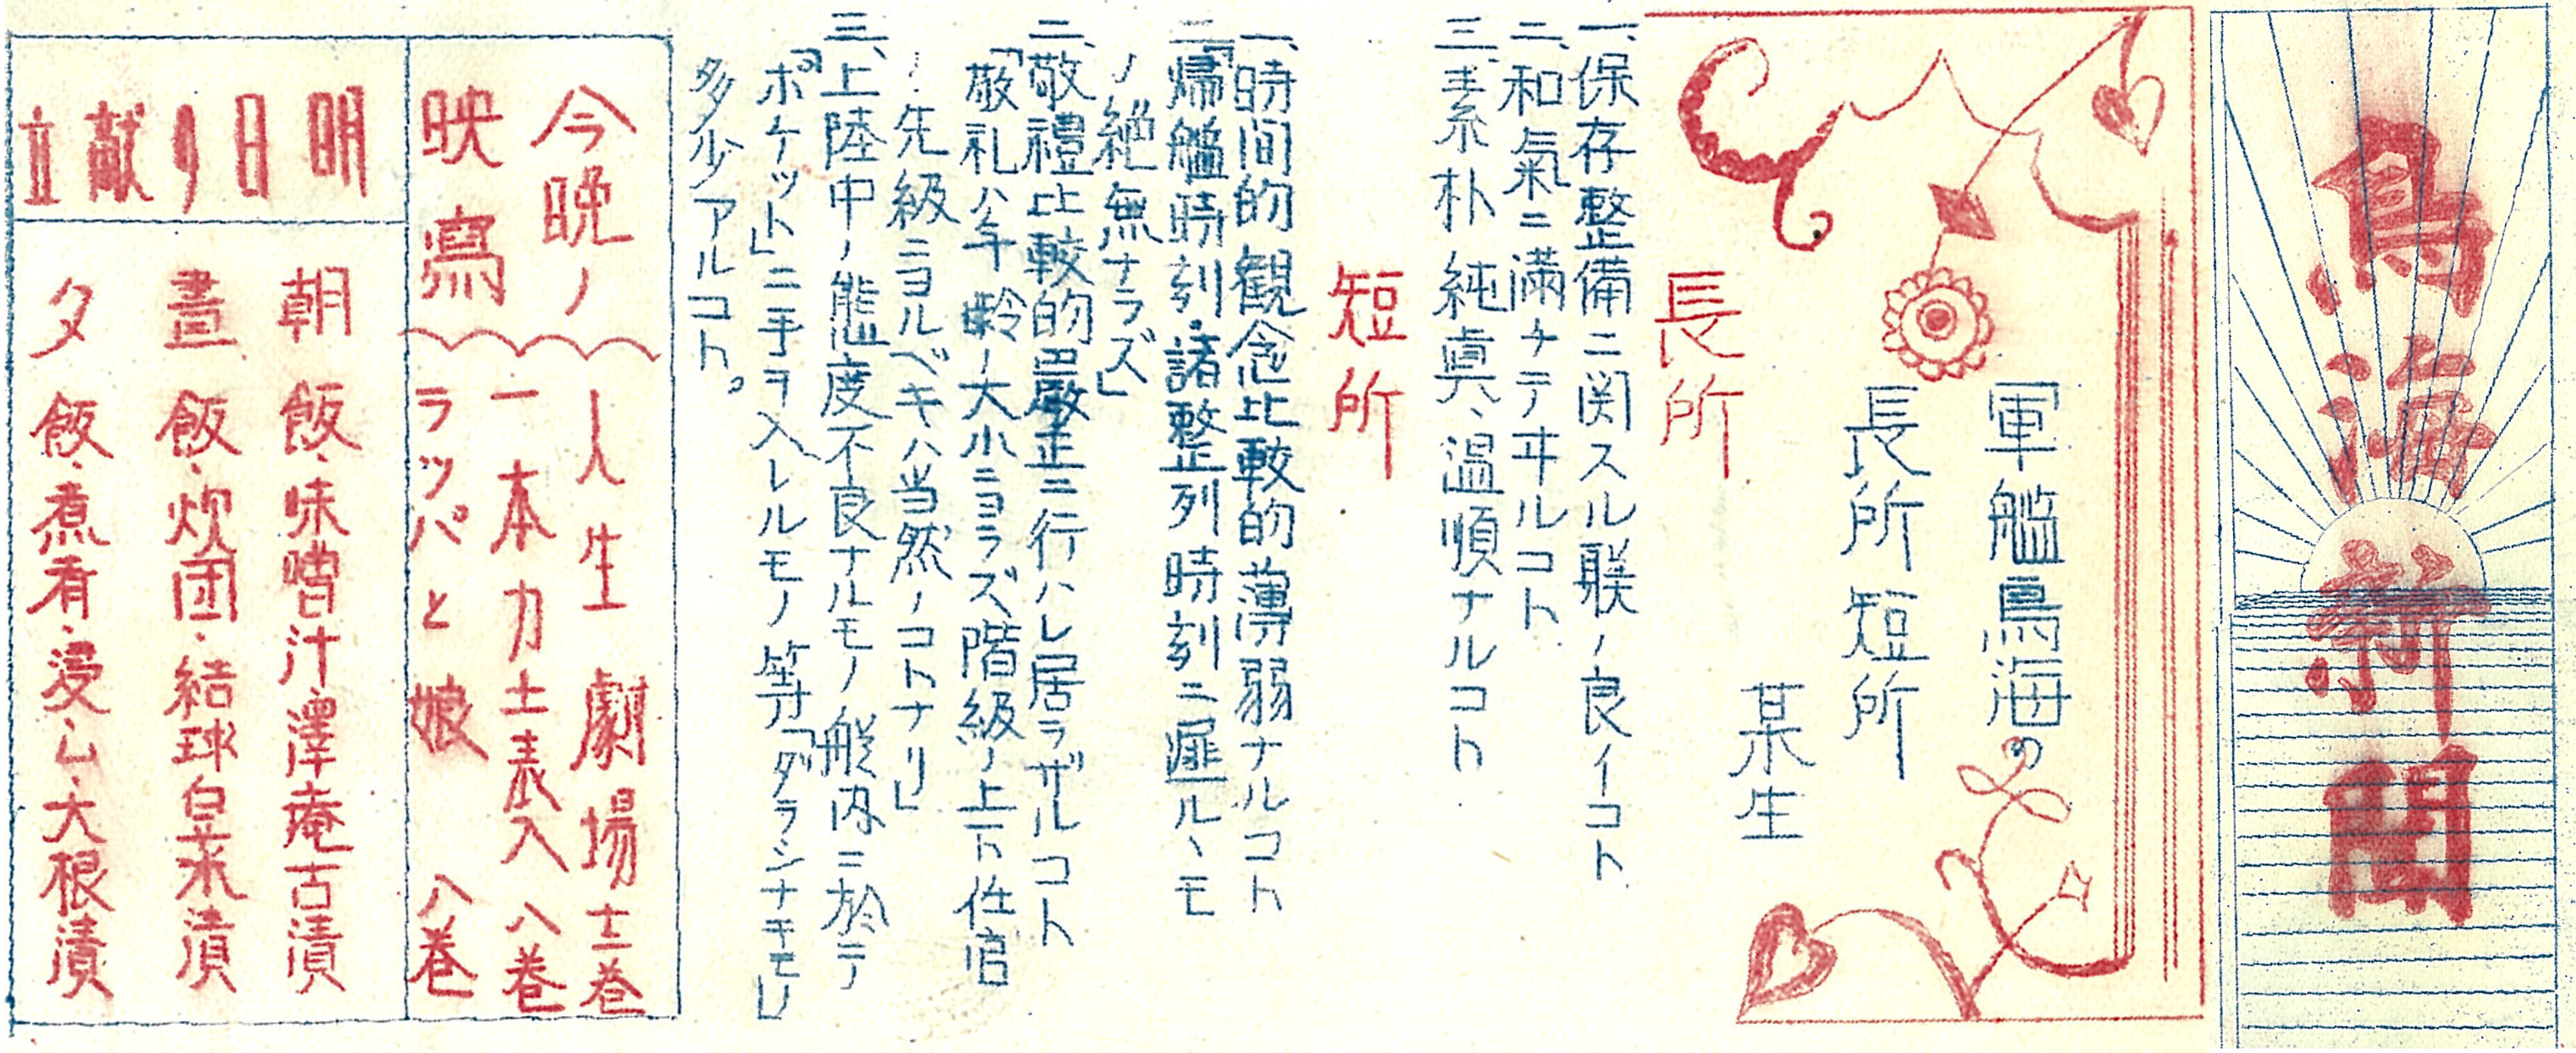 鳥海新聞
軍艦鳥海の
長所短所
某生
長所
一、保存整備ニ関スル躾ノ良イコト
二、和氣ニ満チテヰルコト
三、素朴純真、温順ナルコト
短所
一、時间的観念比較的薄弱ナルコト
「帰艦時刻、諸整列時刻ニ遅ル、モ
ノ絶無ナラズ」
二、敬禮比較的嚴正ニ行ハレ居ラザルコト
「敬礼ハ年齢ノ大小ニヨラズ階級ノ上下任官
ノ先級ニヨルベキハ当然ノコトナリ」
三、上陸中ノ態度不良ナルモノ艦内ニ於テ
「ポケット」ニ手ヲ入レルモノ等「ダラシナキモ」
多少アルコト。
今晩ノ
映寫
人生劇場 士巻
一本刀土表入 八巻
ラッパと娘 八巻
明日ノ献立
朝飯、味噌汁、澤庵古漬
晝飯、炊団、結球白菜漬
夕飯、煮肴、浸し、大根漬